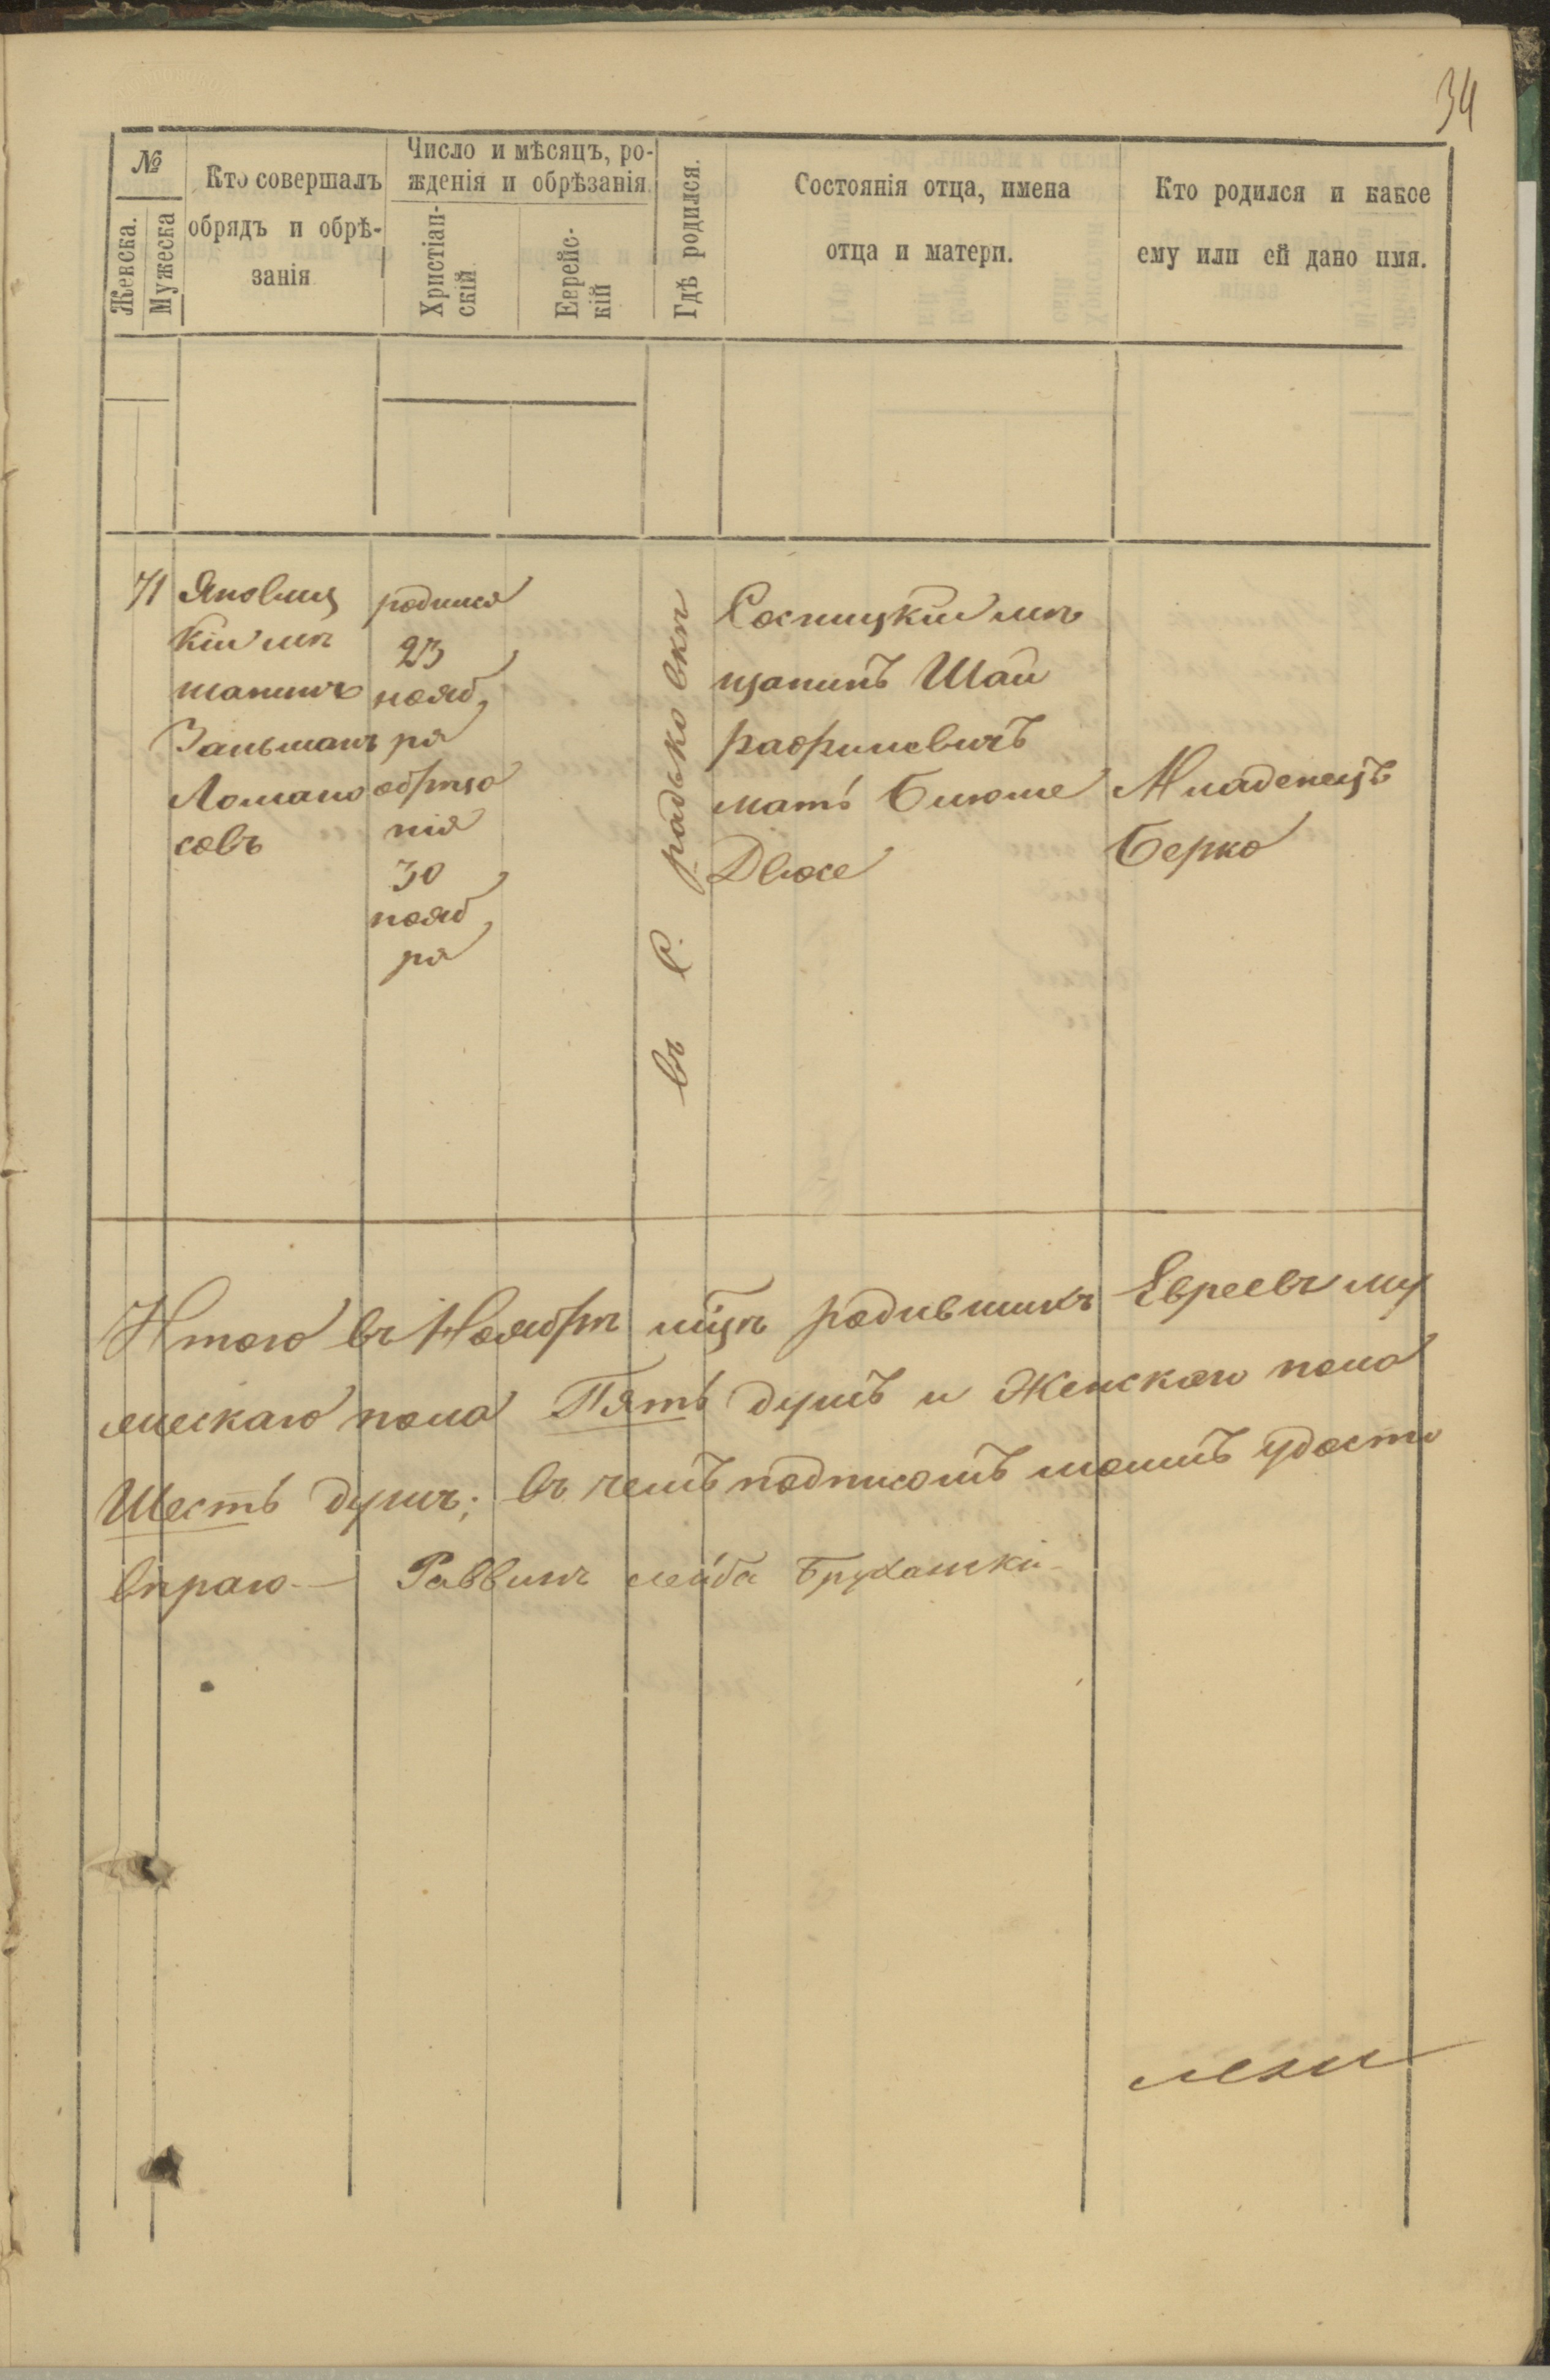 34
№
Женска.
Мужеска
Кто совершалъ
обрядъ и обрѣ-
занія
Число и мѣсяцъ, ро-
жденія и обрѣзанія
Христіан-
скій
Еврейс-
кій
Гдѣ родился.
Состоянія отца, имена
отца и матери.
Кто родился и какое
ему или ей дано имя.
71
кій мѣ
щанинъ
Зальманъ
Ломано
совъ
родился
23
нояб
ря
обрѣза
нія
30
нояб
ря
въ С. радьковкѣ
Сосницкій мѣ
щанинъ Шай
мать Блюме
Двосе
Младенецъ
Берко
Итого въ Ноябрѣ мцѣ родившихъ Евреевъ му
жескаго пола Пять душъ и Женскаго пола
Шесть душъ; въ чемъ подписомъ моимъ удосто
вѣраю — Раввинъ лейба